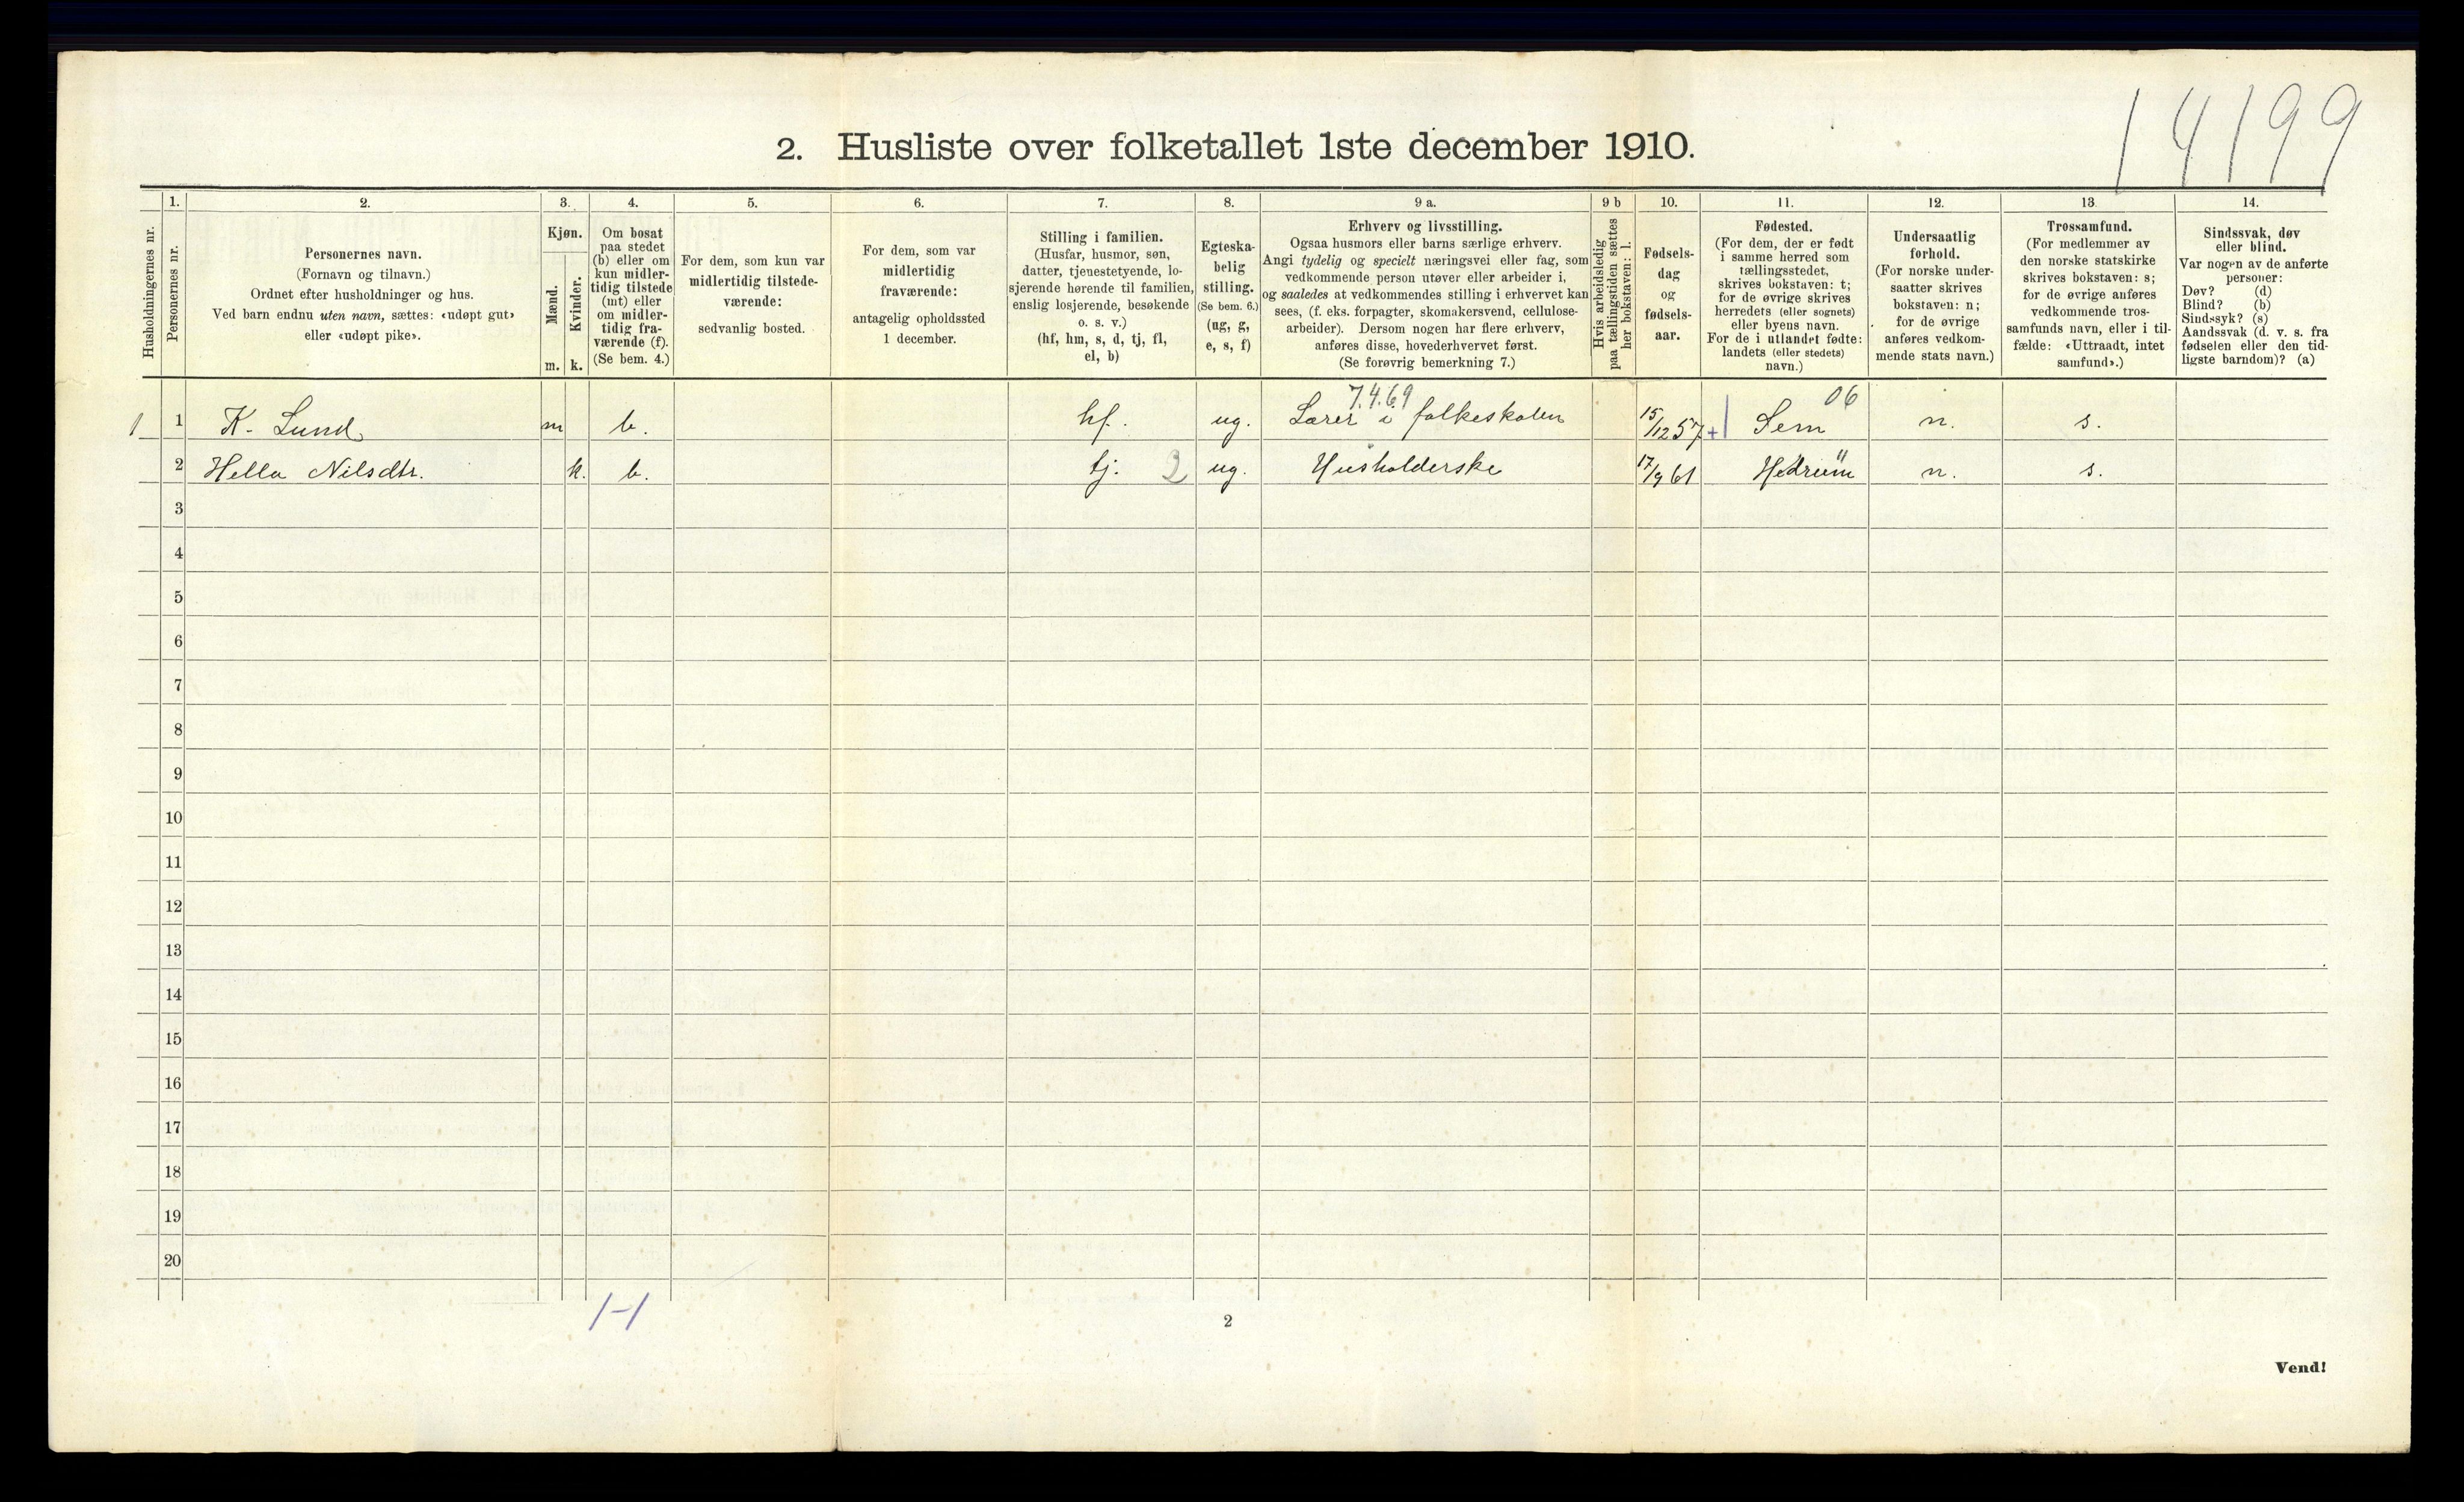 14199
2. Husliste over folketallet 1ste december 1910.
Husholdningernes nr.
1.
Personernes nr.
2.
Personernes navn.
(Fornavn og tilnavn.)
Ordnet efter husholdninger og hus.
Ved barn endnu uten navn, sættes: «udøpt gut»
eller «udøpt pike».
3.
Kjøn.
Mænd.
Kvinder.
m. k.
4.
Om bosat
paa stedet
(b) eller om
kun midler-
tidig tilstede
(mt) eller
om midler-
tidig fra-
værende (f).
(Se bem. 4.)
5.
For dem, som kun var
midlertidig tilstede-
værende:
sedvanlig bosted.
6.
For dem, som var
midlertidig
fraværende:
antagelig opholdssted
1 december.
7.
Stilling i familien.
(Husfar, husmor, søn,
datter, tjenestetyende, lo-
sjerende hørende til familien,
enslig losjerende, besøkende
o. s. v.)
(hf, hm, s, d, tj, fl,
el, b)
8.
Egteska-
belig
stilling.
(Se bem. 6.)
(ug, g,
e, s, f)
9 a.
Erhverv og livsstilling.
Ogsaa husmors eller barns særlige erhverv.
Angi tydelig og specielt næringsvei eller fag, som
vedkommende person utøver eller arbeider i,
og saaledes at vedkommendes stilling i erhvervet kan
sees, (f. eks. forpagter, skomakersvend, cellulose-
arbeider). Dersom nogen har flere erhverv,
anføres disse, hovederhvervet først.
(Se forøvrig bemerkning 7.)
9 b
Hvis arbeidsledig
paa tællingstiden sættes
her bokstaven: l.
10.
Fødsels-
dag
og
fødsels-
aar.
11.
Fødested.
(For dem, der er født
i samme herred som
tællingsstedet,
skrives bokstaven: t;
for de øvrige skrives
herredets (eller sognets)
eller byens navn.
For de i utlandet fødte:
landets (eller stedets)
navn.)
12.
Undersaatlig
forhold.
(For norske under-
saatter skrives
bokstaven: n;
for de øvrige
anføres vedkom-
mende stats navn.)
13.
Trossamfund.
(For medlemmer av
den norske statskirke
skrives bokstaven: s;
for de øvrige anføres
vedkommende tros-
samfunds navn, eller i til-
fælde: «Uttraadt, intet
samfund».)
14.
Sindssvak, døv
eller blind.
Var nogen av de anførte
personer:
Døv? (d)
Blind? (b)
Sindssyk? (s)
Aandssvak (d. v. s. fra
fødselen eller den tid-
ligste barndom)? (a)
7.4.69 06
1 1 K. Lund m b. hf. ug. Lærer i folkeskolen 15/12 57 + Sem n. s.
2 Hella Nilsdtr. k. b. tj. 2 ug. Husholderske 17/9 61 Hedrum 11 n. s.
3
4
5
6
7
8
9
10
11
12
13
14
15
16
17
18
19
20
1-1
2
Vend!